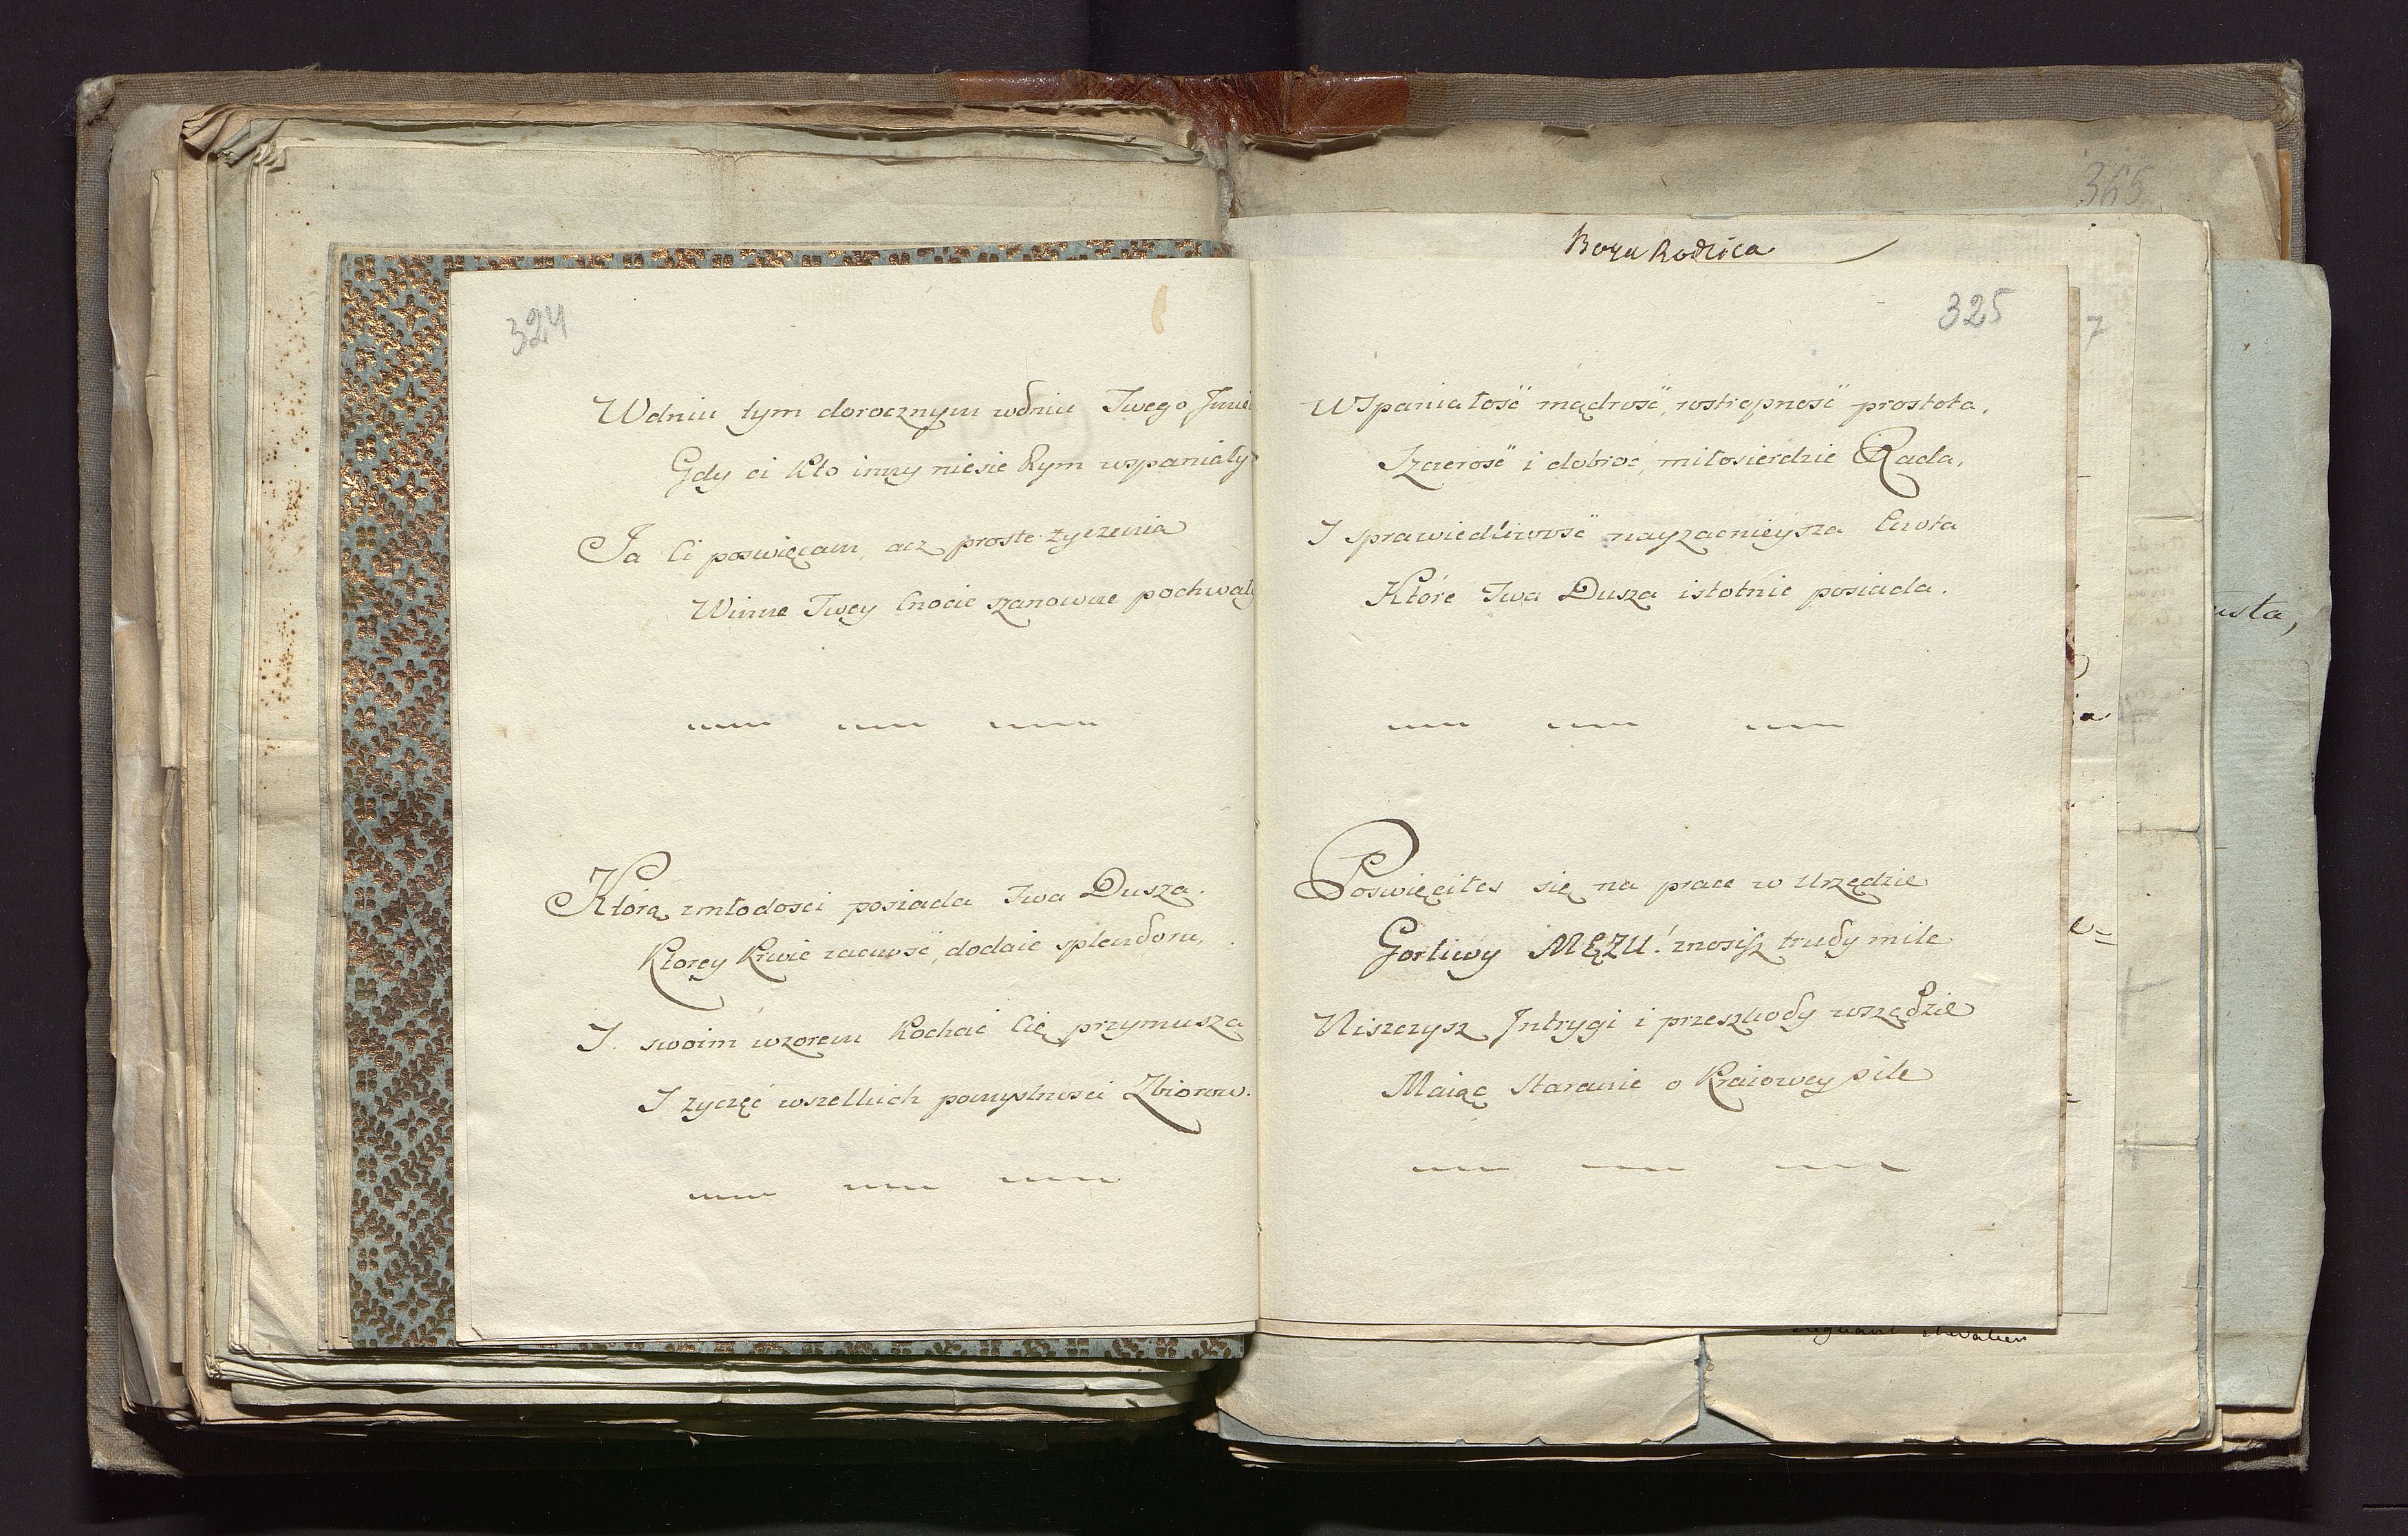 324
Wdniu tym dorocznym wdniu Twego Jmie
Gdy ci Kto inny niesie Rym wspaniały
Ja Ci poswięcam, acz proste życzenia
Winne Twey Cnocie szanowne pochwały
Którą zmłodosci posiada Twa Dusza.
Ktorey Krwie zacność, dodaie splendoru,
I swoim wzorem Kochać Cię przymusza
I zyczęć wszelkich pomyslnosci Zbiorow.
Boga Rodzica
365
325
7
Wspaniałość mądrość, rostropność prostota,
Szczerość i dobroć, miłosierdzie Rada,
I sprawiedliwość nayzacnieysza Cnota
Które Twa Dusza istotnie posiada.
Poswięciłes się na prace w Urzędzie
Gorliwy MĘZU! znosisz trudy mile
Niszczysz Jntrygi i przeszkody wszędzie
Maiąc Staranie o Kraiowey sile
usta,